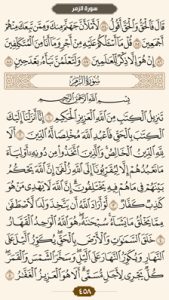 سورة الزمر
قَالَ فَٱلْحَقُّ وَٱلْحَقَّ أَقُولُ ٨٤ لَأَمْلَأَنَّ جَهَنَّمَ مِنكَ وَمِمَّن تَبِعَكَ مِنْهُمْ
أَجْمَعِينَ ٨٥ قُلْ مَآ أَسْـَٔلُكُمْ عَلَيْهِ مِنْ أَجْرٍ وَمَآ أَنَا۠ مِنَ ٱلْمُتَكَلِّفِينَ
٨٦ إِنْ هُوَ إِلَّا ذِكْرٌ لِّلْعَـٰلَمِينَ ٨٧ وَلَتَعْلَمُنَّ نَبَأَهُۥ بَعْدَ حِينٍۭ ٨٨
سُورَةُ الزُّمَرِ
بِسْمِ ٱللَّهِ ٱلرَّحْمَـٰنِ ٱلرَّحِيمِ
تَنزِيلُ ٱلْكِتَـٰبِ مِنَ ٱللَّهِ ٱلْعَزِيزِ ٱلْحَكِيمِ ١ إِنَّآ أَنزَلْنَآ إِلَيْكَ
ٱلْكِتَـٰبَ بِٱلْحَقِّ فَٱعْبُدِ ٱللَّهَ مُخْلِصًا لَّهُ ٱلدِّينَ ٢ أَلَا
لِلَّهِ ٱلدِّينُ ٱلْخَالِصُ وَٱلَّذِينَ ٱتَّخَذُوا۟ مِن دُونِهِۦٓ أَوْلِيَآءَ
مَا نَعْبُدُهُمْ إِلَّا لِيُقَرِّبُونَآ إِلَى ٱللَّهِ زُلْفَىٰٓ إِنَّ ٱللَّهَ يَحْكُمُ
بَيْنَهُمْ فِى مَا هُمْ فِيهِ يَخْتَلِفُونَ إِنَّ ٱللَّهَ لَا يَهْدِى مَنْ هُوَ
كَـٰذِبٌ كَفَّارٌ ٣ لَّوْ أَرَادَ ٱللَّهُ أَن يَتَّخِذَ وَلَدًا لَّٱصْطَفَىٰ
مِمَّا يَخْلُقُ مَا يَشَآءُ سُبْحَـٰنَهُۥ هُوَ ٱللَّهُ ٱلْوَٰحِدُ ٱلْقَهَّارُ
٤ خَلَقَ ٱلسَّمَـٰوَٰتِ وَٱلْأَرْضَ بِٱلْحَقِّ يُكَوِّرُ ٱلَّيْلَ عَلَى
ٱلنَّهَارِ وَيُكَوِّرُ ٱلنَّهَارَ عَلَى ٱلَّيْلِ وَسَخَّرَ ٱلشَّمْسَ وَٱلْقَمَرَ
كُلٌّ يَجْرِى لِأَجَلٍ مُّسَمًّى أَلَا هُوَ ٱلْعَزِيزُ ٱلْغَفَّـٰرُ ٥
٤٥٨